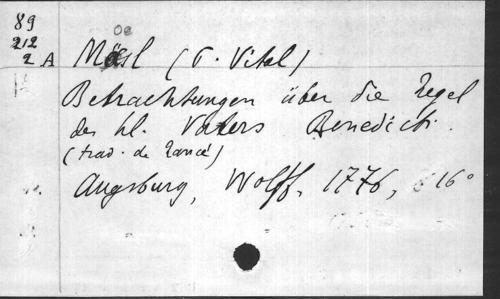 89
212
2 A
oe
Mösl (P. Vital)
Betrachtungen über die Regel
des hl. Vaters Benedicti.
(trad. de Rancé)
Augsburg, Wolff, 1776, 16°